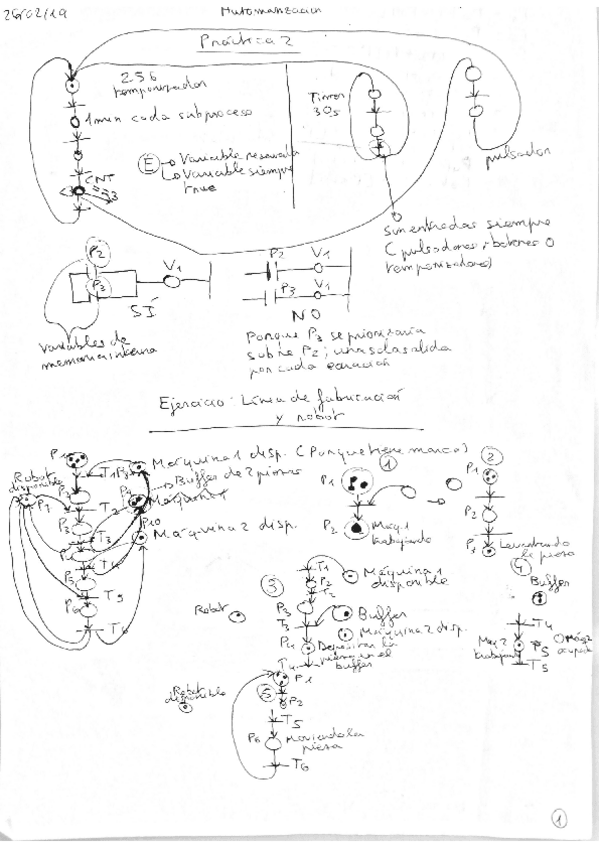 26/02/19
Automatización
Práctica 2
2.5 6
temporizador
1 min cada subproceso
E
Variable reservada
Variable siempre
true
CNT
== 3
Timer
30s
pulsador
Sin entradas siempre
(pulsadores, botones o
temporizadores)
P2
V1
P3
SÍ
Variables de
memoria interna
P2
V1
P3
V1
NO
Porque P3 se priorizaría
sobre P2; una sola salida
por cada ecuación
Ejercicio: Línea de fabricación
y robot
P1
T1
Máquina 1 disp. (Porque tiene marca)
Robot
disponible
Buffer de 2 piezas
P7
T2
P3
P10
T3
Máquina 2 disp.
T4
P5
T5
P6
T6
1
P1
P2
Máq 1
trabajando
2
P1
P2
Levantando
la pieza
3
T1
P2
T2
Máquina 1
disponible
P3
T3
Buffer
Máquina 2 disp.
P4
Depositar la
pieza en el
buffer
T4
Robot
4
Buffer
T4
Máq 2
P5
T5
5
P1
P2
Robot
disponible
T5
P6
Moviendo la
pieza
T6
1